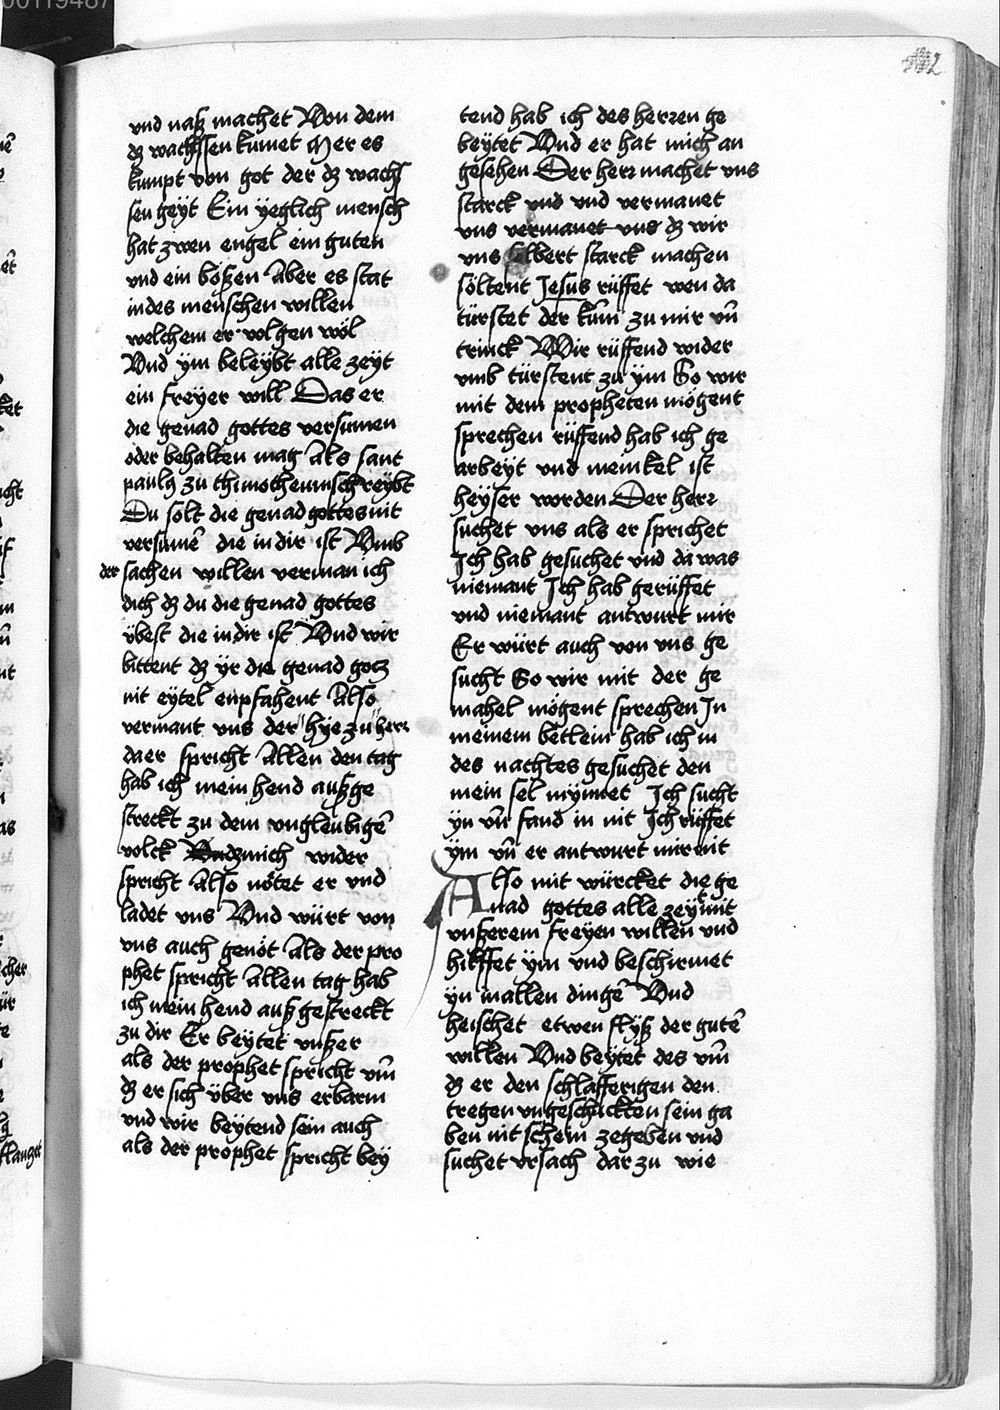 und naß machet Von dem
dz wachssen kumet Mer es
kumpt von got der dz wachs
sen geyt Ein yeglich mensch
hat zwen engel ein guten
und ein bößen Aber es stat
in des menschen willen
welchem er volgen wöl
Vnd ym beleybt alle zeyt
ein freyer will Das er
die genad gottes versumen
oder behalten mag Als sant
pauly zu thimotheum schreybt
Du solt die genad gottes nit
versumē die in dir ist Vmb
der sachen willen verman ich
dich dz du die genad gottes
übest die in dir ist Vnd wir
bittent dz ÿr die genad gotz
nit eytel enpfahent Also
vermant vns der hye zu herr
da er spricht Allen den tag
hab ich mein hend außge
streckt zu dem vngleubigē
volck mich wider
spricht Also nötet er vnd
ladet vns Vnd würt von
vns auch genöt Als der pro
phet spricht Allen tag hab
ich mein hend auß gestreckt
zu dir Er beytet vnßer
als der prophet spricht vm̄
dz er sich über vns erbarm
vnd wir beytend sein auch
als der prophet spricht bey
tend hab ich des herren ge
beytet Vnd er hat mich an
gesehen Der herr machet vns
starck vnd vnd vermanet
vns vermanet vns dz wir
vns selbert starck machen
söltent Jesus rüffet wen da
türstet der kum̄ zu mir vn̄
trinck Wir rüffend wider
vmb türstent zu ÿm So wir
mit dem propheten mögent
sprechen rüffend hab ich ge
arbeyt vnd mein kel ist
heyser worden Der herr
suchet vns als er sprichet
Ich hab gesuchet vnd da was
niemant Ich hab gerüffet
vnd niemant antwurt mir
Er würt auch von vns ge
sucht So wir mit der ge
mahel mögent sprechen In
meinem betlein hab ich in
des nachtes gesuchet den
mein sel mynnet Ich sucht
ÿn vn̄ fand in nit Ich rüffet
ÿm vn̄ er antwurt mir nit
Also mit würcket die ge
nad gottes alle zeyt mit
vnßerem freyen willen vnd
hilffet ÿm vnd beschirmet
ÿn in allen dingē Vnd
heischet etwen flyß der gutē
willen Vnd beytet des vm̄
dz er den schlafferigen den
tregen vngeschickten sein ga
ben nit schein zegeben vnd
suchet vrsach dar zu wie